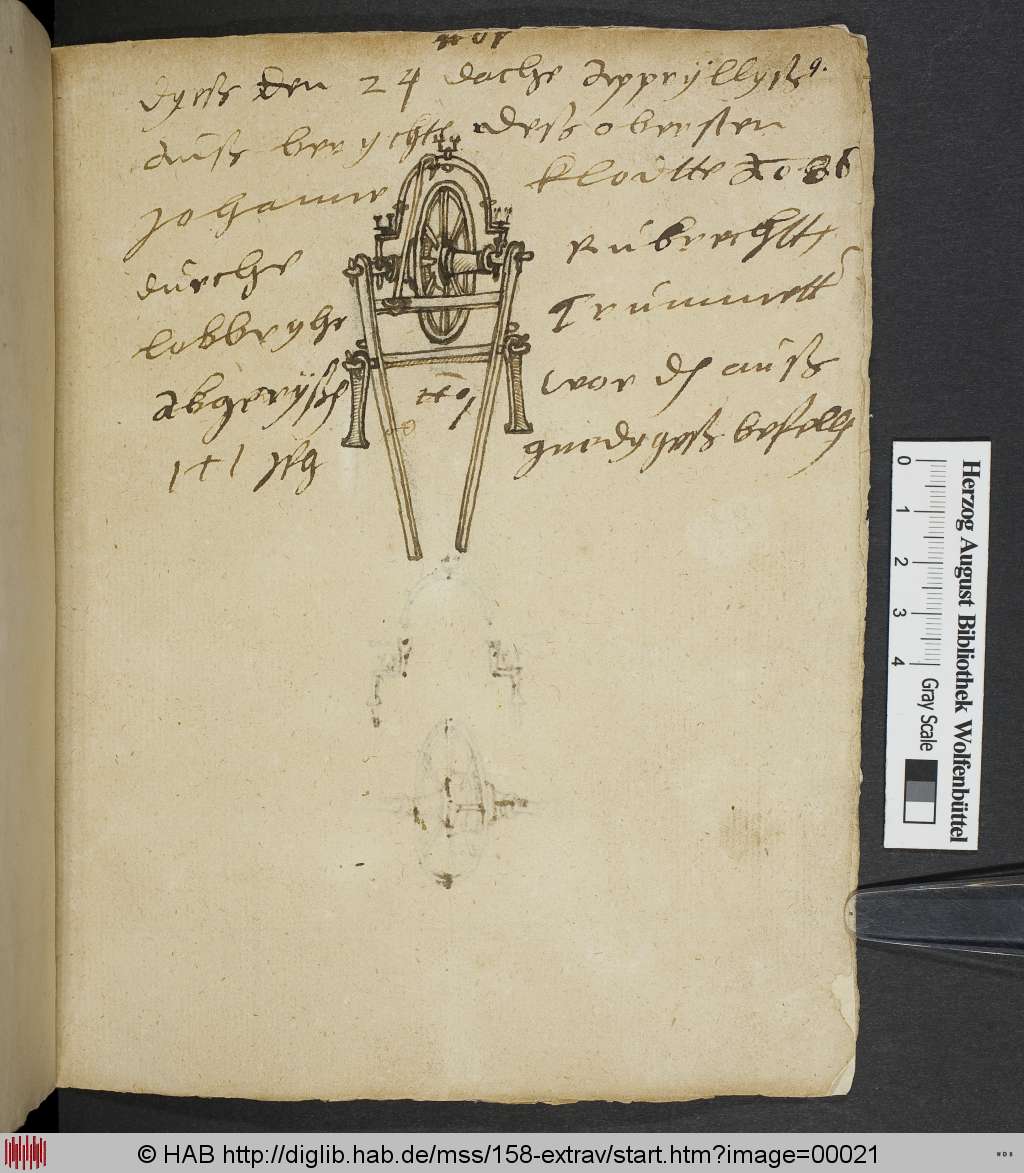 dyesß den 24 dache Appryllysß 9.
auß berychte deß obersten
Johanne kloutte Ao 86
durche Rubrechtt
lobbryhe Trummett
Abgeryssen wor den auß
gnedygesß befelh
Herzog August Bibliothek Wolfenbüttel
0 1 2 3 4 Gray Scale
© HAB http://diglib.hab.de/mss/158-extrav/start.htm?image=00021